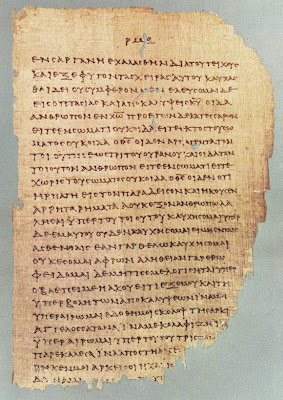 ρμε
ΕΝϹΑΡΓΑΝΗΕΧΑΛΑϹΘΗΝΔΙΑΤΟΥΤΕΙΧΟΥϹ
ΚΑΙΕΞΕΦΥΓΟΝΤΑϹΧΕΙΡΑϹΑΥΤΟΥΚΑΥΧΑϹ
ΘΑΙΔΕΙΟΥϹΥΜΦΕΡΟΝΜΕΝΕΛΕΥϹΟΜΑΙΔΕ
ΕΙϹΟΠΤΑϹΙΑϹΚΑΙΑΠΟΚΑΛΥΨΕΙϹΚΥΟΙΔΑ
ΑΝΘΡΩΠΟΝΕΝΧΡΩΠΡΟΕΤΩΝΔΕΚΑΤΕϹϹΑΡΩΝ
ΕΙΤΕΕΝϹΩΜΑΤΙΟΥΚΟΙΔΑΕΙΤΕΕΚΤΟϹΤΟΥϹΩ
ΜΑΤΟϹΟΥΚΟΙΔΑΟΘϹΟΙΔΕΝΑΡΠΑΓΕΝΤΑΤΟΝ
ΤΟΙΟΥΤΟΝΕΩϹΤΡΙΤΟΥΟΥΡΑΝΟΥΚΑΙΟΙΔΑΤΟΝ
ΤΟΙΟΥΤΟΝΑΝΘΡΩΠΟΝΕΙΤΕΕΝϹΩΜΑΤΙΕΙΤΕ
ΧΩΡΙϹΤΟΥϹΩΜΑΤΟϹΟΥΚΟΙΔΑΟΘϹΟΙΔΕΝΟΤΙ
ΗΡΠΑΓΗΕΙϹΤΟΝΠΑΡΑΔΕΙϹΟΝΚΑΙΗΚΟΥϹΕΝ
ΑΡΡΗΤΑΡΗΜΑΤΑΑΟΥΚΕΞΟΝΑΝΘΡΩΠΩΛΑ
ΛΗϹΑΙΥΠΕΡΤΟΥΤΟΙΟΥΤΟΥΚΑΥΧΗϹΟΜΑΙΥΠΕΡ
ΔΕΕΜΑΥΤΟΥΟΥΔΕΝΚΑΥΧΗϹΟΜΑΙΕΙΜΗΕΝΤΑΙϹ
ΑϹΘΕΝΕΙΑΙϹΕΑΝΓΑΡΘΕΛΩΚΑΥΧΗϹΟΜΑΙ
ΟΥΚΕϹΟΜΑΙΑΦΡΩΝΑΛΗΘΕΙΑΝΓΑΡΕΡΩ
ΦΕΙΔΟΜΑΙΔΕΜΗΤΙϹΕΜΕΛΟΓΙϹΗΤΑΙΥΠΕΡ
ΟΒΛΕΠΕΙΜΕΗΑΚΟΥΕΙΤΙΕΞΕΜΟΥΚΑΙΤΗ
ΥΠΕΡΒΟΛΗΤΩΝΑΠΟΚΑΛΥΨΕΩΝΙΝΑΜΗ
ΥΠΕΡΑΙΡΩΜΑΙΕΔΟΘΗΜΟΙϹΚΟΛΟΨΤΗ
ΑΓΓΕΛΟϹϹΑΤΑΝΑΙΝΑΜΕΚΟΛΑΦΙΖΗΙΝΑ
ΥΠΕΡΑΙΡΩΜΑΙΥΠΕΡΤΟΥΤΟΥΤΡΙϹ
ΠΑΡΕΚΑΛΕϹΑΙΝΑΑΠΟϹΤΗ
ΡΗΚΕΝΜΟΙΑΡΚΕΙϹΟΙΗΧ